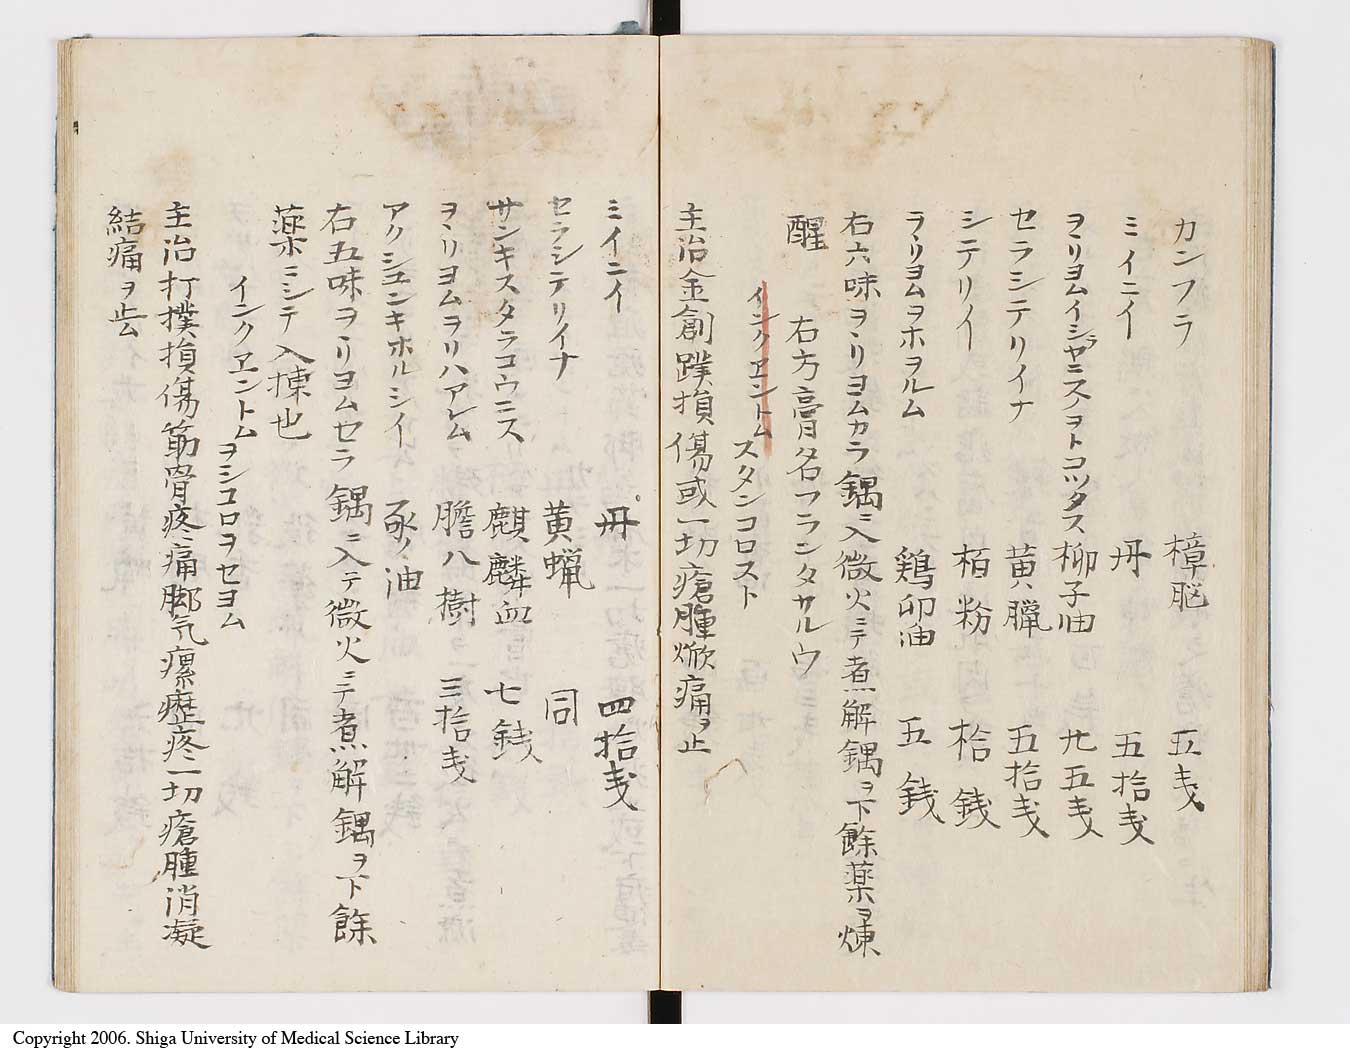 カンフラ 樟脳 五戔
ミイニイ 丹 五拾戔
ヲヽリヨムイシヤラニスノヲトコツタス 椰子油 廿五戔
セラシテリイナ 黄臘 五拾戔
シテリイ 栢粉 拾銭
ヲヽリヨムヲホヲルム 鶏卵油 五銭
右六味ヲヽリヨムカラ鍋ニ入微火ニテ煮解鍋ヲ下餘薬ヲ煉
醒 右方膏名フランタサルウ
インクヱントム スタンコロスト
主治金創蹼損傷或一切瘡腫焮痛ヲ止
ミイニイ 丹 四拾戔
セラシテリイナ 黄蝋 同
サンキスタラコウニス 麒麟血 七銭
ヲヽリヨムヲリハアレム 膽八樹 三拾戔
アクシユンキホルシイ 豕ノ油
右五味ヲヽリヨムセラ鍋ニ入テ微火ニテ煮解鍋ヲ下餘
薬ニシテ入煉也
インクヱントム ヲシコロヲセヨム
主治打撲損傷筋骨疼痛脚気瘰癧疼一切瘡腫消凝
結痛ヲ去
Copyright 2006. Shiga University of Medical Science Library